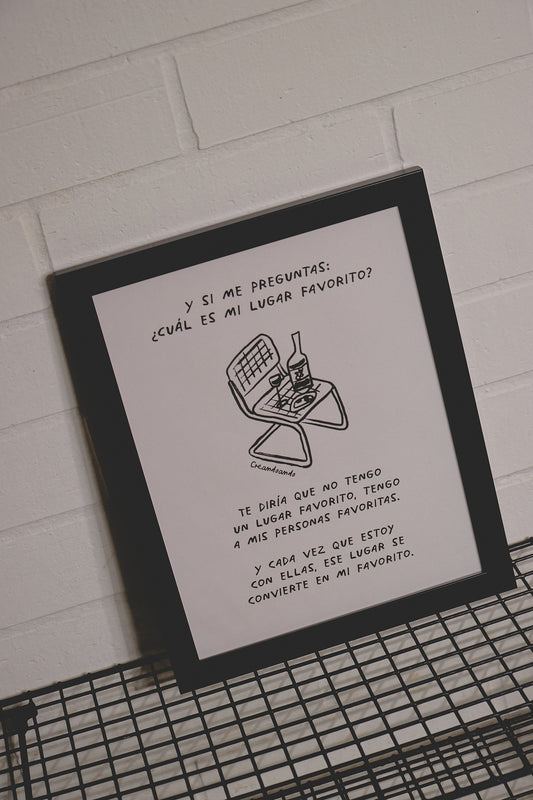 Y SI ME PREGUNTAS:
¿CUÁL ES MI LUGAR FAVORITO?
Creandoando
TE DIRÍA QUE NO TENGO
UN LUGAR FAVORITO, TENGO
A MIS PERSONAS FAVORITAS.
Y CADA VEZ QUE ESTOY
CON ELLAS, ESE LUGAR SE
CONVIERTE EN MI FAVORITO.